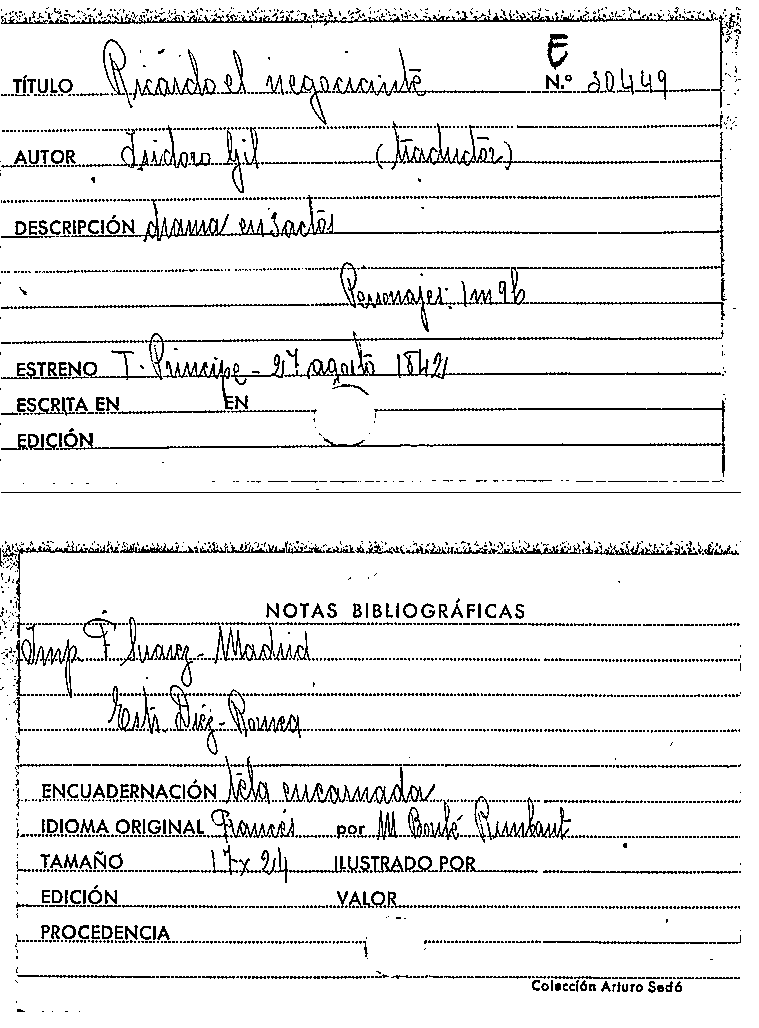 E
TÍTULO Ricardo el negociante N.º 30449
AUTOR Isidoro Gil (traductor)
DESCRIPCIÓN drama en 3 actos
Personajes: 1 m 9 h
ESTRENO T. Principe - 27 agosto 1842
ESCRITA EN EN
EDICIÓN
NOTAS BIBLIOGRÁFICAS
Imp F Suarez - Madrid
Diez-
ENCUADERNACIÓN tela encarnada
IDIOMA ORIGINAL Francés por M
TAMAÑO 17 x 24 ILUSTRADO POR
EDICIÓN VALOR
PROCEDENCIA
Colección Arturo Sedó